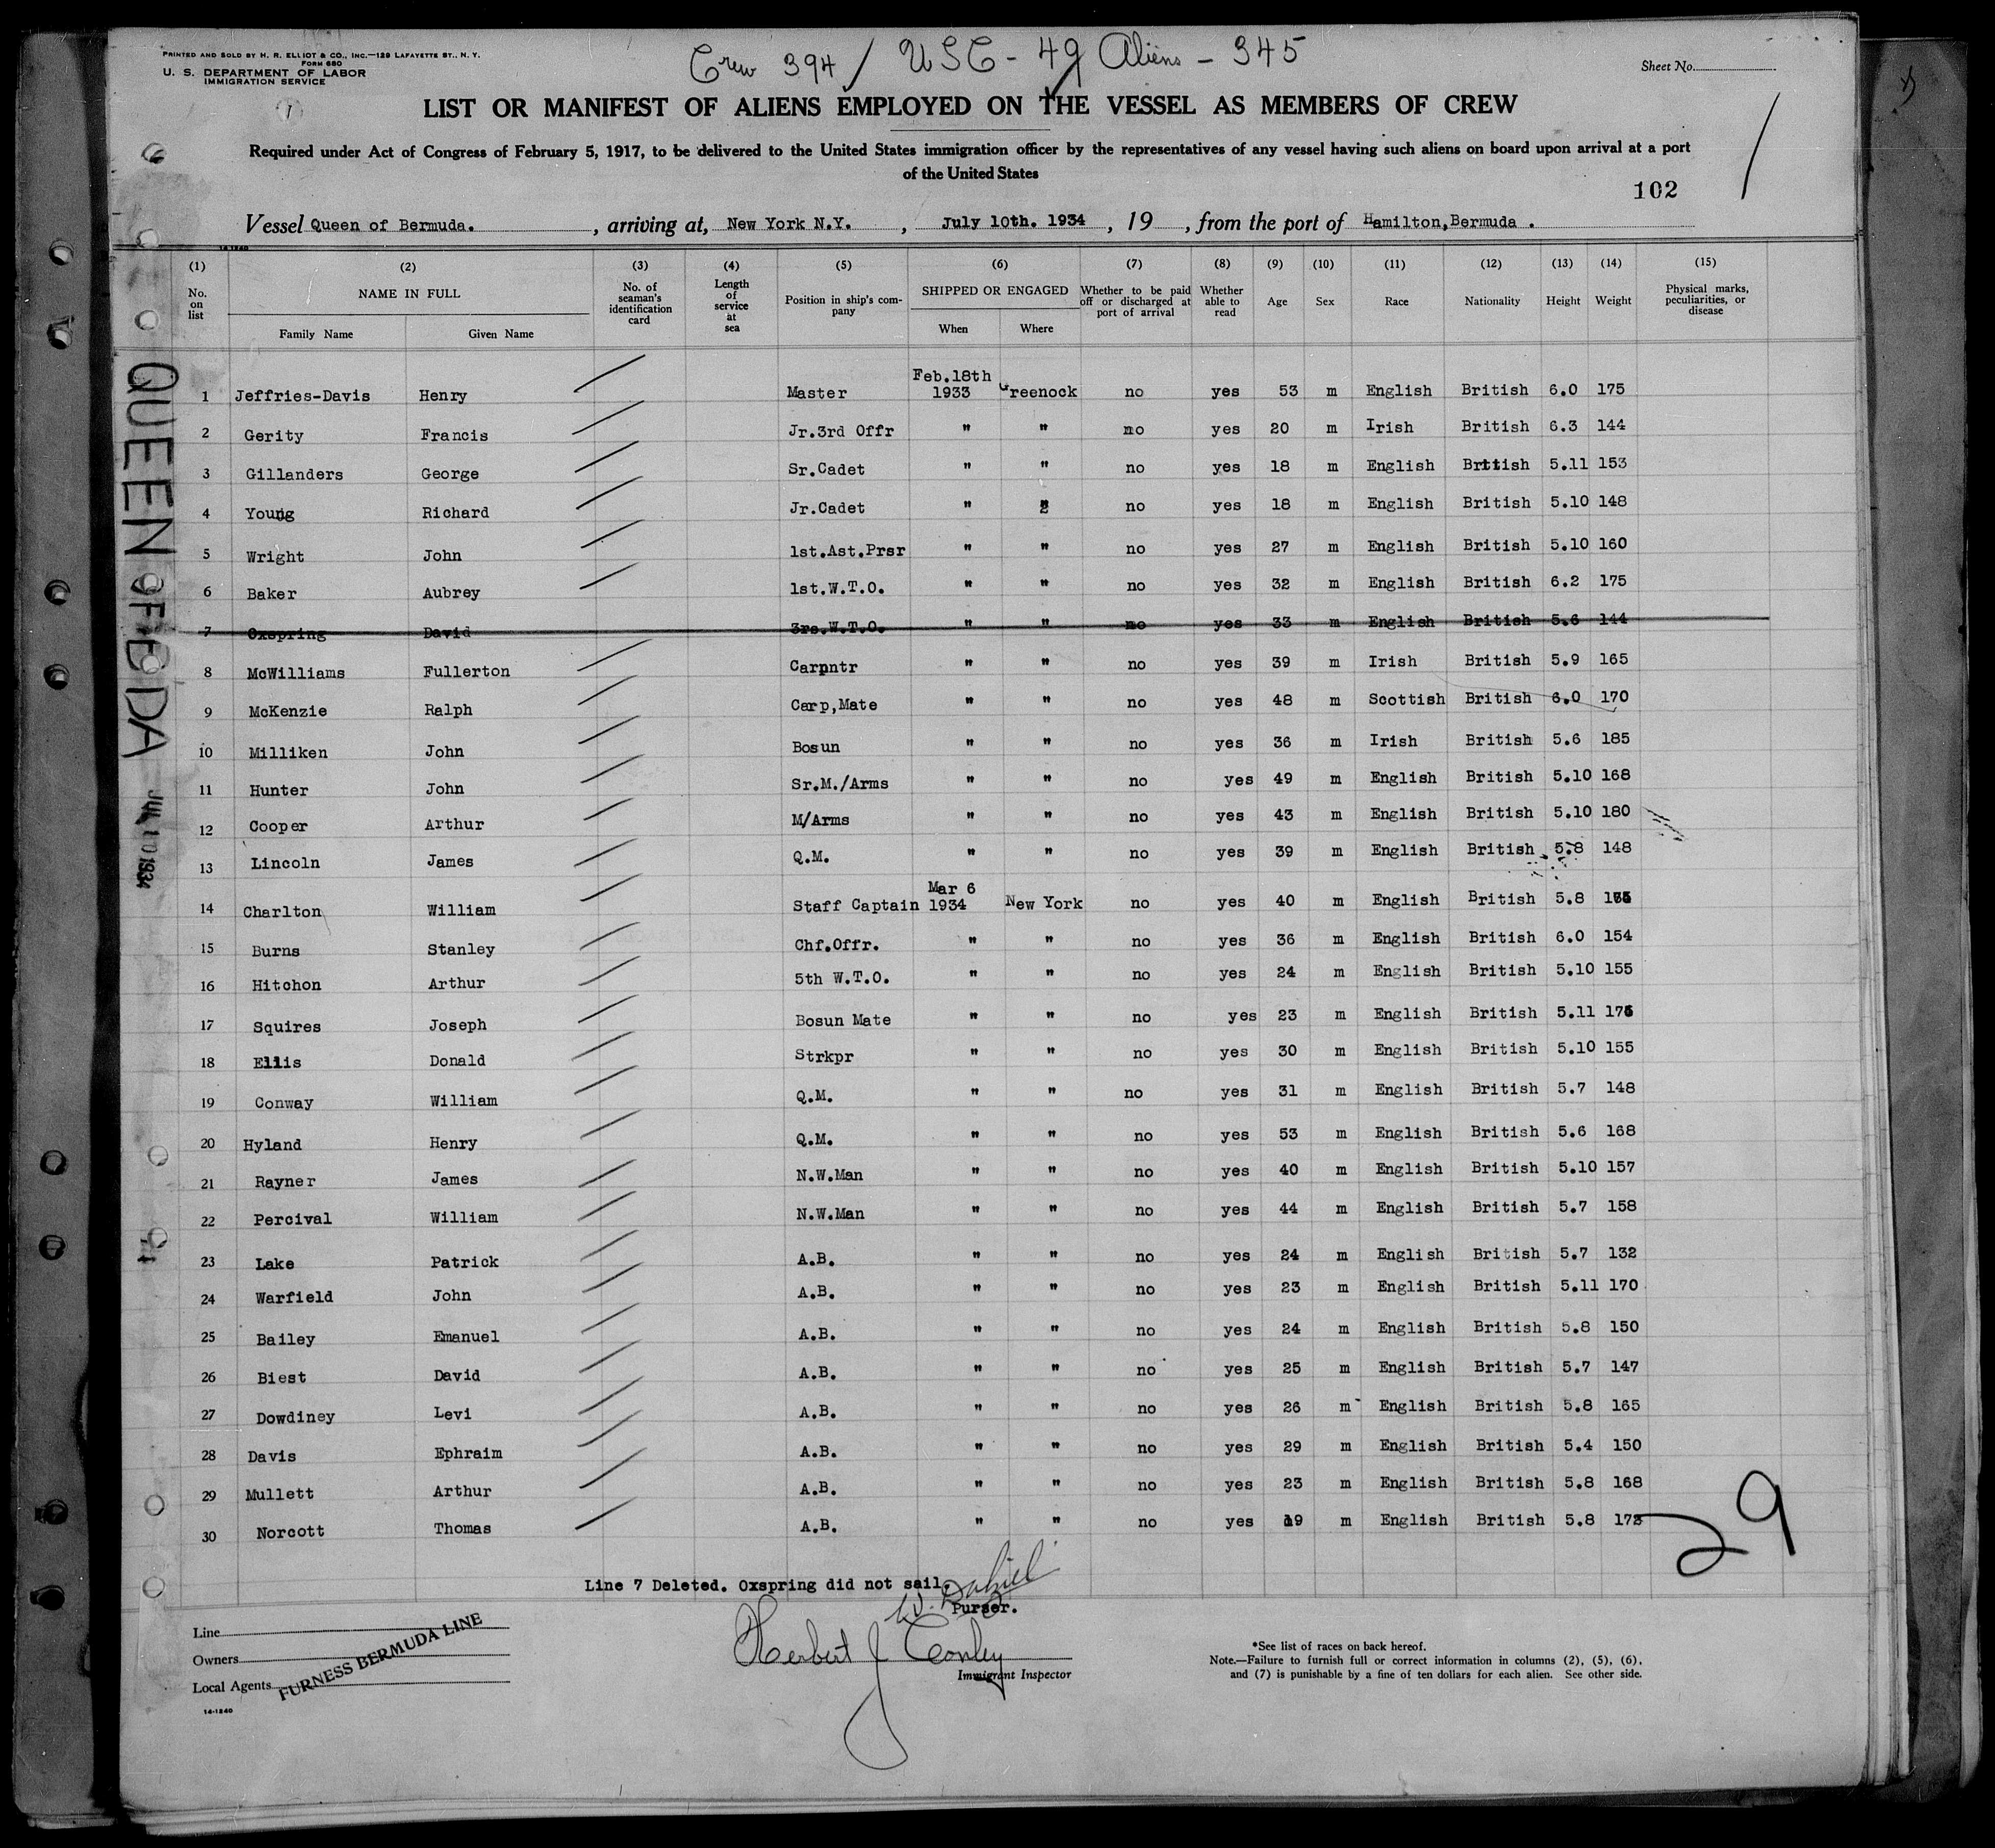 PRINTED AND SOLD BY H. R. ELLIOT & CO., INC.—129 LAFAYETTE ST., N. Y.
FORM 680
U. S. DEPARTMENT OF LABOR
IMMIGRATION SERVICE
Crew 394 / USC - 49 Aliens - 345
Sheet No.
LIST OR MANIFEST OF ALIENS EMPLOYED ON THE VESSEL AS MEMBERS OF CREW
Required under Act of Congress of February 5, 1917, to be delivered to the United States immigration officer by the representatives of any vessel having such aliens on board upon arrival at a port
of the United States
102
Vessel Queen of Bermuda. , arriving at, New York N.Y. , July 10th. 1934 , 19 , from the port of Hamilton,Bermuda .
14-1240
(1) (2) (3) (4) (5) (6) (7) (8) (9) (10) (11) (12) (13) (14) (15)
No. on list NAME IN FULL Family Name Given Name No. of seaman's identification card Length of service at sea Position in ship's company SHIPPED OR ENGAGED When Where Whether to be paid off or discharged at port of arrival Whether able to read Age Sex Race Nationality Height Weight Physical marks, peculiarities, or disease
1 Jeffries-Davis Henry Master Feb.18th 1933 Greenock no yes 53 m English British 6.0 175
2 Gerity Francis Jr.3rd Offr " " no yes 20 m Irish British 6.3 144
3 Gillanders George Sr.Cadet " " no yes 18 m English Brttish 5.11 153
4 Young Richard Jr.Cadet " " no yes 18 m English British 5.10 148
5 Wright John 1st.Ast.Prsr " " no yes 27 m English British 5.10 160
6 Baker Aubrey 1st.W.T.O. " " no yes 32 m English British 6.2 175
7 Oxspring David 3rs.W.T.O. " " no yes 33 m English British 5.6 144
8 McWilliams Fullerton Carpntr " " no yes 39 m Irish British 5.9 165
9 McKenzie Ralph Carp,Mate " " no yes 48 m Scottish British 6.0 170
10 Milliken John Bosun " " no yes 36 m Irish British 5.6 185
11 Hunter John Sr.M./Arms " " no yes 49 m English British 5.10 168
12 Cooper Arthur M/Arms " " no yes 43 m English British 5.10 180
13 Lincoln James Q.M. " " no yes 39 m English British 5.8 148
14 Charlton William Staff Captain Mar 6 1934 New York no yes 40 m English British 5.8
15 Burns Stanley Chf.Offr. " " no yes 36 m English British 6.0 154
16 Hitchon Arthur 5th W.T.O. " " no yes 24 m English British 5.10 155
17 Squires Joseph Bosun Mate " " no yes 23 m English British 5.11
18 Ellis Donald Strkpr " " no yes 30 m English British 5.10 155
19 Conway William Q.M. " " no yes 31 m English British 5.7 148
20 Hyland Henry Q.M. " " no yes 53 m English British 5.6 168
21 Rayner James N.W.Man " " no yes 40 m English British 5.10 157
22 Percival William N.W.Man " " no yes 44 m English British 5.7 158
23 Lake Patrick A.B. " " no yes 24 m English British 5.7 132
24 Warfield John A.B. " " no yes 23 m English British 5.11 170
25 Bailey Emanuel A.B. " " no yes 24 m English British 5.8 150
26 Biest David A.B. " " no yes 25 m English British 5.7 147
27 Dowdiney Levi A.B. " " no yes 26 m English British 5.8 165
28 Davis Ephraim A.B. " " no yes 29 m English British 5.4 150
29 Mullett Arthur A.B. " " no yes 23 m English British 5.8 168
30 Norcott Thomas A.B. " " no yes 19 m English British 5.8
29
Line 7 Deleted. Oxspring did not sail.
Purser.
Herbert J Conley
Immigrant Inspector
Line
Owners
Local Agents
FURNESS BERMUDA LINE
14-1240
*See list of races on back hereof.
Note.—Failure to furnish full or correct information in columns (2), (5), (6),
and (7) is punishable by a fine of ten dollars for each alien. See other side.
QUEEN OF B DA
JUL 10 1934